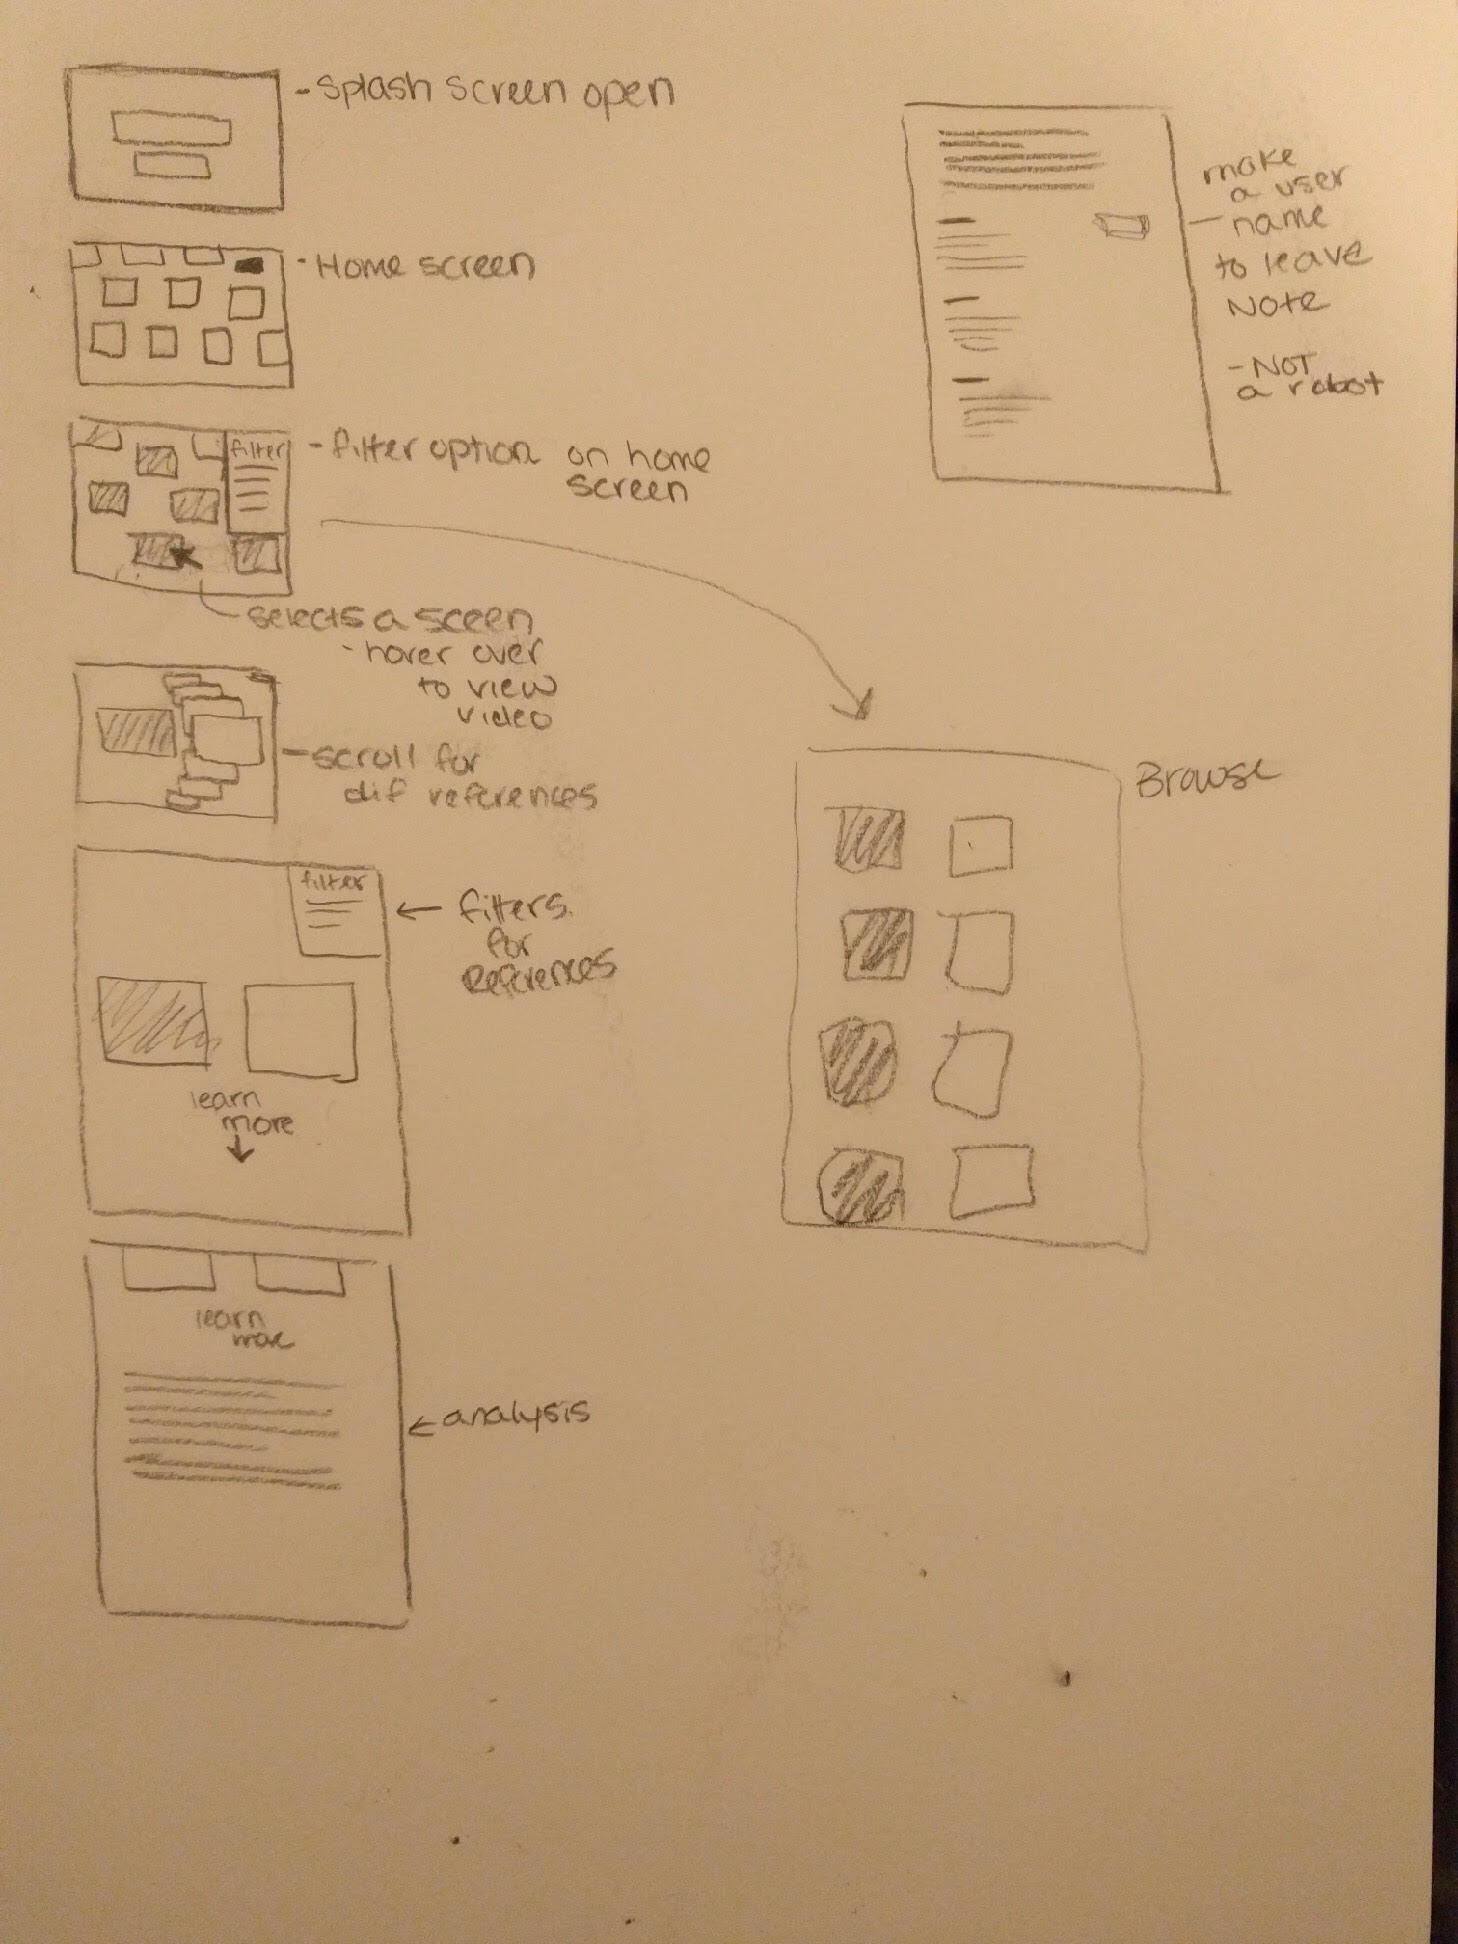 - splash screen open
- Home screen
filter
- filter option on home
screen
selects a sceen
- hover over
to view
video
- scroll for
dif references
filter
← filters
for
references
learn
more
↓
learn
more
← analysis
make
a user
- name
to leave
Note
- NOT
a robot
Browse